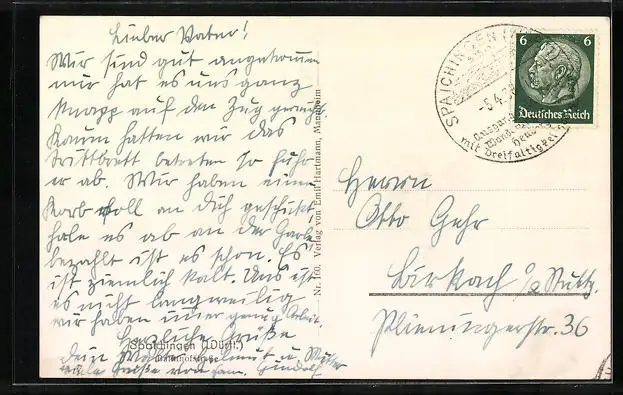 Lieber Vater!
Wir sind gut angekommen
nur hat es uns ganz
knapp auf den Zug gereicht.
Kaum hatten wir das
Trittbrett betreten so fuhr
er ab. Wir haben einen
Korb voll an dich geschickt
hole es ab an der
bezahlt ist es schon. Es
ist ziemlich kalt. Uns ist
es nicht langweilig
wir haben immer genug Arbeit.
Herzliche Grüße
dein u. Mutter
viele Grüße von Fam.
Spaichingen (Württ.)
Bahnhofstraße
Nr. 110. Verlag von Emil Hartmann, Mannheim
SPAICHINGEN
mit Dreifaltigkeit
6 6
Deutsches Reich
Herrn
Otto Gehr
Birkach a/ Stuttg.
Plieningerstr. 36